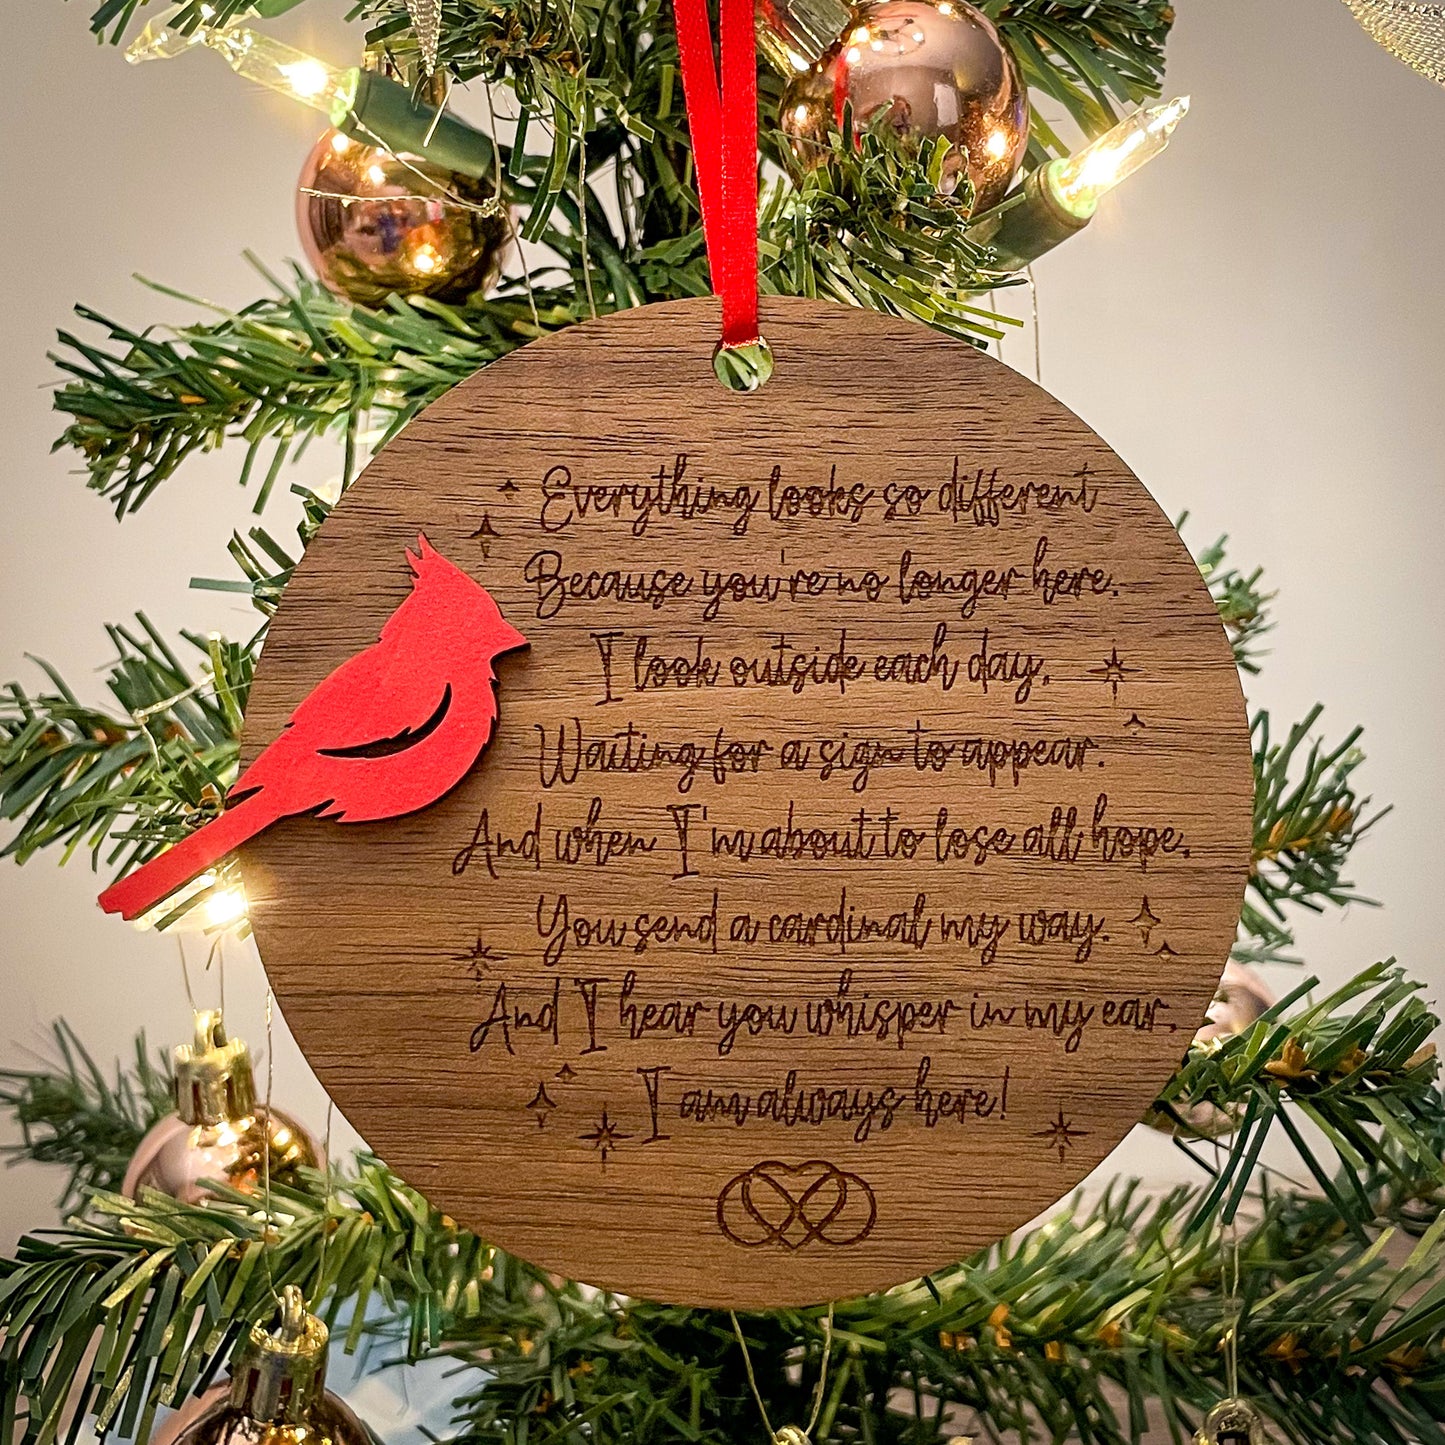 Everything looks so different
Because you're no longer here.
I look outside each day,
Waiting for a sign to appear.
And when I'm about to lose all hope,
You send a cardinal my way.
And I hear you whisper in my ear,
I am always here!